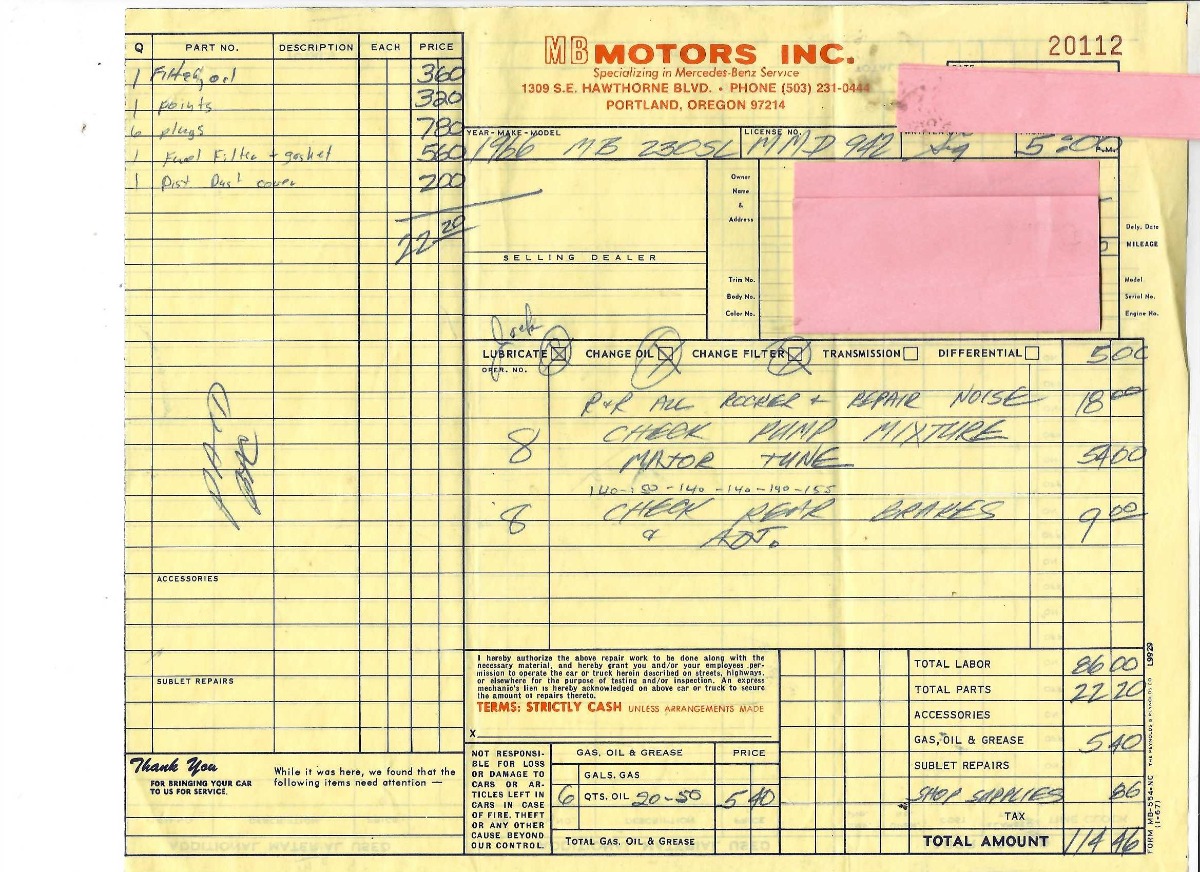 MB MOTORS INC.
20112
Specializing in Mercedes-Benz Service
1309 S.E. HAWTHORNE BLVD. • PHONE (503) 231-0444
PORTLAND, OREGON 97214
Q PART NO. DESCRIPTION EACH PRICE
1 Filter, oil 360
1 points 320
6 plugs 780
1 Fuel Filter + gasket 560
1 Dist Dust cover 200
22 20
PAID
YEAR-MAKE-MODEL LICENSE NO.
1966 MB 230SL MMD 942 5:00 P.M.
Owner
Name
&
Address
Dely. Date
MILEAGE
SELLING DEALER
Trim No. Model
Body No. Serial No.
Color No. Engine No.
LUBRICATE CHANGE OIL CHANGE FILTER TRANSMISSION DIFFERENTIAL 500
OPER. NO.
R+R ALL ROCKER + REPAIR NOISE 18 00
8 CHECK PUMP MIXTURE
MAJOR TUNE 5400
140-150-140-140-140-155
8 CHECK REAR BRAKES 9 00
& ADJ.
ACCESSORIES
SUBLET REPAIRS
I hereby authorize the above repair work to be done along with the
necessary material, and hereby grant you and/or your employees per-
mission to operate the car or truck herein described on streets, highways,
or elsewhere for the purpose of testing and/or inspection. An express
mechanic's lien is hereby acknowledged on above car or truck to secure
the amount of repairs thereto.
TERMS: STRICTLY CASH UNLESS ARRANGEMENTS MADE
X
TOTAL LABOR 86 00
TOTAL PARTS 22 20
ACCESSORIES
GAS, OIL & GREASE 5 40
SUBLET REPAIRS
SHOP SUPPLIES 86
TAX
TOTAL AMOUNT 114 46
Thank You
FOR BRINGING YOUR CAR
TO US FOR SERVICE.
While it was here, we found that the
following items need attention —
NOT RESPONSI-
BLE FOR LOSS
OR DAMAGE TO
CARS OR AR-
TICLES LEFT IN
CARS IN CASE
OF FIRE, THEFT
OR ANY OTHER
CAUSE BEYOND
OUR CONTROL.
GAS, OIL & GREASE PRICE
GALS. GAS
6 QTS. OIL 20-50 5 40
Total Gas, Oil & Grease
FORM MB-554-NC (1-67)